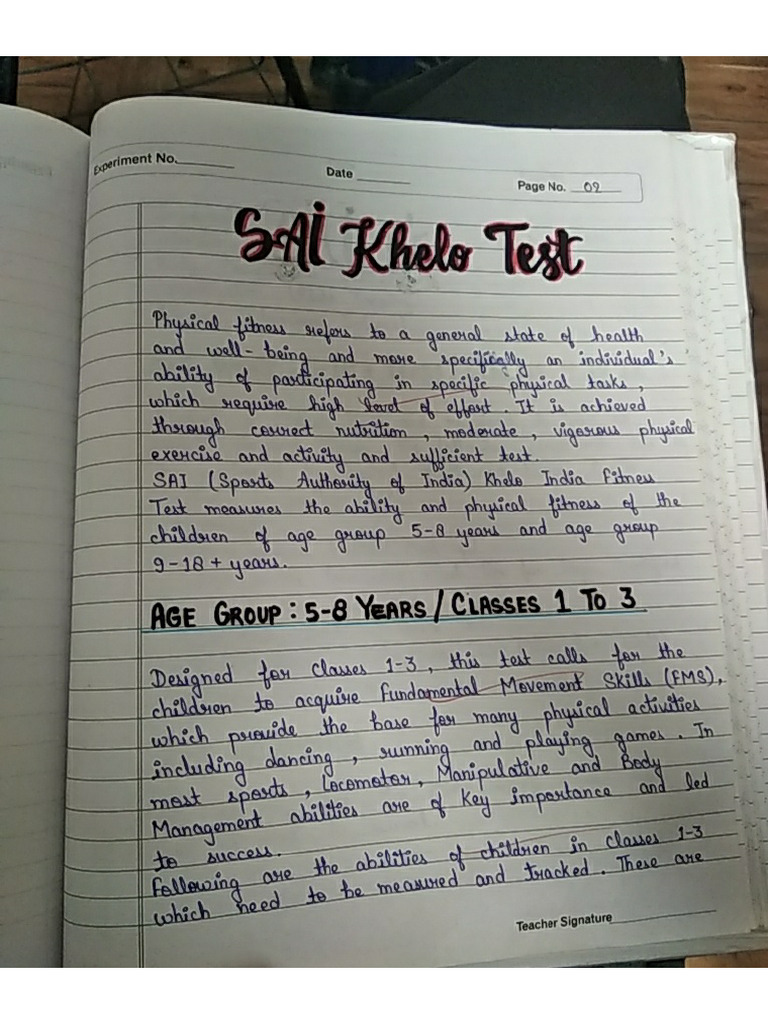 Experiment No.
Date
Page No. 02
SAI Khelo Test
Physical fitness refers to a general state of health
and well-being and more specifically an individual's
ability of participating in specific physical tasks,
which require high level of effort. It is achieved
through correct nutrition, moderate, vigorous physical
exercise and activity and sufficient test.
SAI (Sports Authority of India) Khelo India Fitness
Test measures the ability and physical fitness of the
children of age group 5-8 years and age group
9-18+ years.
AGE GROUP: 5-8 YEARS/CLASSES 1 TO 3
Designed for Classes 1-3, this test calls for the
children to acquire Fundamental Movement Skills (FMS),
which provide the base for many physical activities
including dancing, running and playing games. In
most sports, Locomotor, Manipulative and Body
Management abilities are of key importance and led
to success.
Following are the abilities of children in classes 1-3
which need to be measured and tracked. These are
Teacher Signature